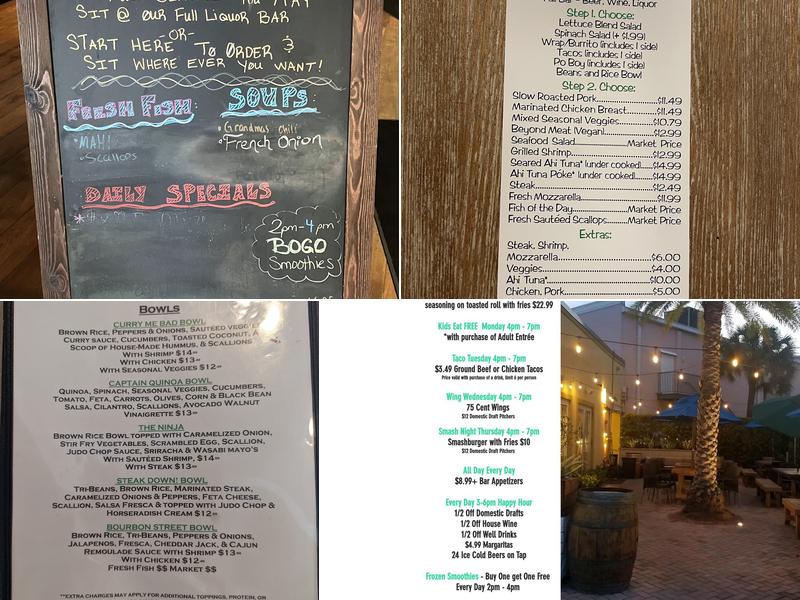 SIT @ OUR FULL LIQUOR BAR
-OR-
START HERE TO ORDER &
SIT WHERE EVER YOU WANT!
FRESH FISH:
• MAHI
• Scallops
SOUPS:
• Grandmas chili
• French Onion
DAILY SPECIALS
2pm-4pm
BOGO
Smoothies
Full Bar - Beer, Wine, Liquor
Step 1. Choose:
Lettuce Blend Salad
Spinach Salad (+ $1.99)
Wrap/Burrito (includes 1 side)
Tacos (includes 1 side)
Po Boy (includes 1 side)
Beans and Rice Bowl
Step 2. Choose:
Slow Roasted Pork...$11.49
Marinated Chicken Breast...$11.49
Mixed Seasonal Veggies...$10.79
Beyond Meat (Vegan)...$12.99
Seafood Salad...Market Price
Grilled Shrimp...$12.99
Seared Ahi Tuna* (under cooked)...$14.99
Ahi Tuna Poke* (under cooked)...$14.99
Steak...$12.49
Fresh Mozzarella...$11.99
Fish of the Day...Market Price
Fresh Sautéed Scallops...Market Price
Extras:
Steak, Shrimp,
Mozzarella...$6.00
Veggies...$4.00
Ahi Tuna*...$10.00
Chicken, Pork...$5.00
BOWLS
CURRY ME BAD BOWL
BROWN RICE, PEPPERS & ONIONS, SAUTÉED VEGGIES,
CURRY SAUCE, CUCUMBERS, TOASTED COCONUT, A
SCOOP OF HOUSE-MADE HUMMUS, & SCALLIONS
WITH SHRIMP $14
WITH CHICKEN $13
WITH SEASONAL VEGGIES $12
CAPTAIN QUINOA BOWL
QUINOA, SPINACH, SEASONAL VEGGIES, CUCUMBERS,
TOMATO, FETA, CARROTS, OLIVES, CORN & BLACK BEAN
SALSA, CILANTRO, SCALLIONS, AVOCADO WALNUT
VINAIGRETTE $13
THE NINJA
BROWN RICE BOWL TOPPED WITH CARAMELIZED ONION,
STIR FRY VEGETABLES, SCRAMBLED EGG, SCALLION,
JUDO CHOP SAUCE, SRIRACHA & WASABI MAYO'S
WITH SAUTÉED SHRIMP, $14
WITH STEAK $13
STEAK DOWN! BOWL
TRI-BEANS, BROWN RICE, MARINATED STEAK,
CARAMELIZED ONIONS & PEPPERS, FETA CHEESE,
SCALLION, SALSA FRESCA & TOPPED WITH JUDO CHOP &
HORSERADISH CREAM $12
BOURBON STREET BOWL
BROWN RICE, TRI-BEANS, PEPPERS & ONIONS,
JALAPENOS, FRESCA, CHEDDAR JACK, & CAJUN
REMOULADE SAUCE WITH SHRIMP $13
WITH CHICKEN $12
FRESH FISH $$ MARKET $$
**EXTRA CHARGES MAY APPLY FOR ADDITIONAL TOPPINGS, PROTEIN, OR
seasoning on toasted roll with fries $22.99
Kids Eat FREE Monday 4pm - 7pm
*with purchase of Adult Entrée
Taco Tuesday 4pm - 7pm
$3.49 Ground Beef or Chicken Tacos
Price valid with purchase of a drink, limit 6 per person
Wing Wednesday 4pm - 7pm
75 Cent Wings
$12 Domestic Draft Pitchers
Smash Night Thursday 4pm - 7pm
Smashburger with Fries $10
$12 Domestic Draft Pitchers
All Day Every Day
$8.99+ Bar Appetizers
Every Day 3-6pm Happy Hour
1/2 Off Domestic Drafts
1/2 Off House Wine
1/2 Off Well Drinks
$4.99 Margaritas
24 Ice Cold Beers on Tap
Frozen Smoothies - Buy One get One Free
Every Day 2pm - 4pm